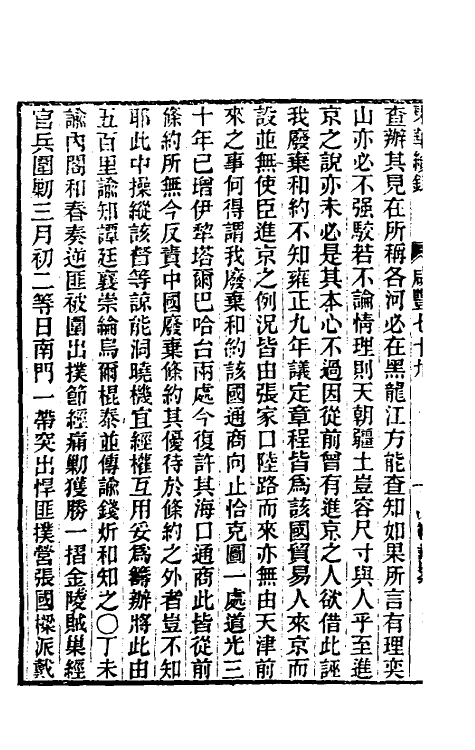 東華續錄 咸豐七十九
查辦其見在所稱各河必在黑龍江方能查知如果所言有理奕
山亦必不强駮若不論情理則天朝疆土豈容尺寸與人乎至進
京之說亦未必是其本心不過因從前曾有進京之人欲借此誣
我廢棄和約不知雍正九年議定章程皆爲該國貿易人來京而
設並無使臣進京之例況皆由張家口陸路而來亦無由天津前
來之事何得謂我廢棄和約該國通商向止恰克圖一處道光三
十年已增伊犂塔爾巴哈台兩處今復許其海口通商此皆從前
條約所無今反責中國廢棄條約其優待於條約之外者豈不知
耶此中操縱該督等諒能洞曉機宜經權互用妥爲籌辦將此由
五百里諭知譚廷襄崇綸烏爾棍泰並傳諭錢炘和知之〇丁未
諭內閣和春奏逆匪被圍出撲節經痛勦獲勝一摺金陵賊巢經
官兵圍勦三月初二等日南門一帶突出悍匪撲營張國樑派戴